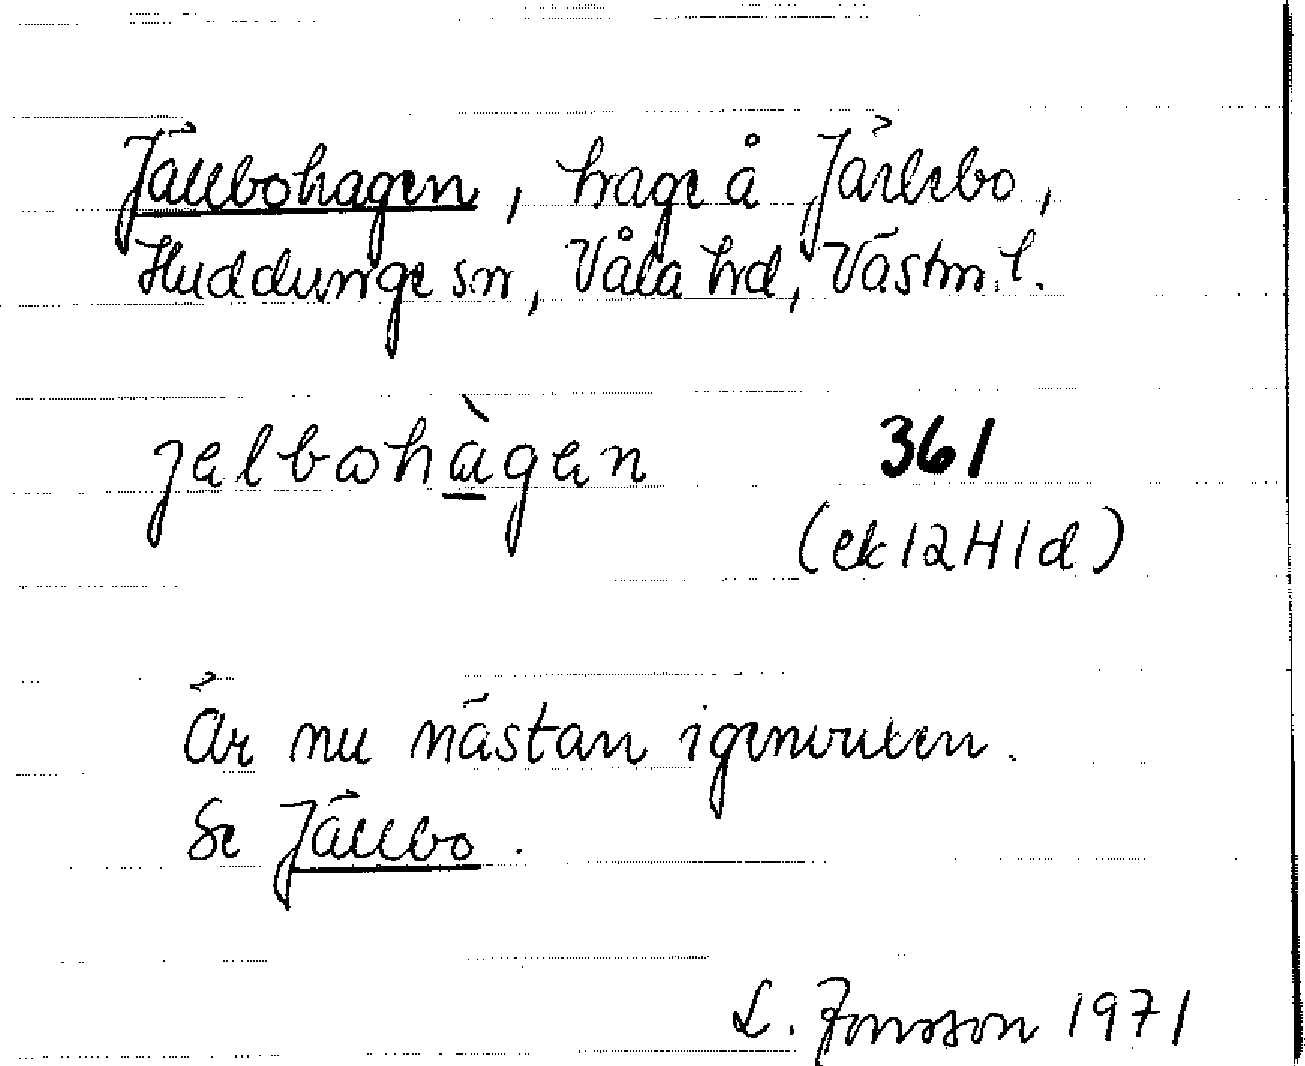 Jällbohagen, hage å Järlebo,
Huddunge sn, Våla hd, Västm.l.
jælbωhàgæn
361
(ek 12H1d)
Är nu nästan igenvuxen.
Se Jällbo.
L. Jonsson 1971